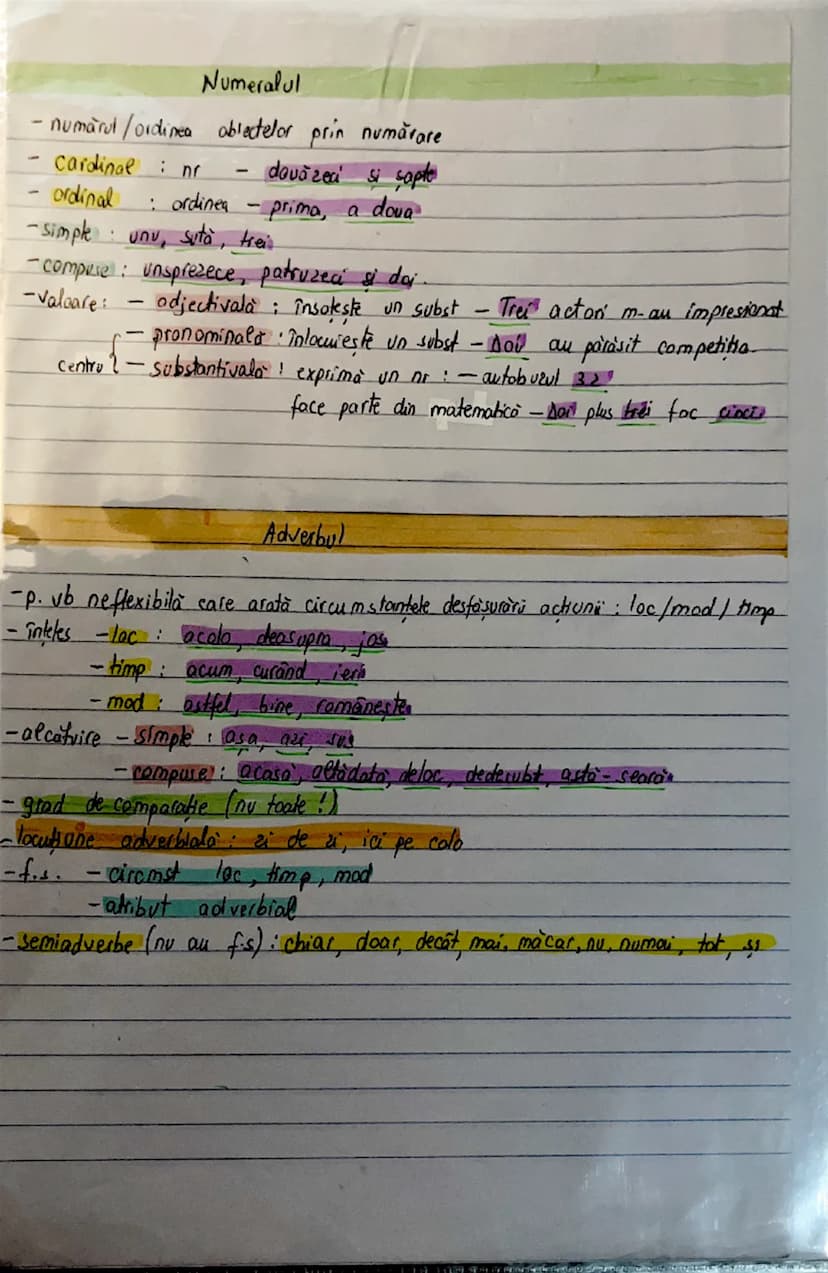 Numeralul
- numărul/ordinea obiectelor prin numărare
- cardinal : nr - douăzeci și șapte
- ordinal : ordinea - prima, a doua
- simple : unu, sută, trei
- compuse : unsprezece, patruzeci și doi.
- valoare : - adjectivală : însoțește un subst - Trei actori m-au impresionat
- pronominală : înlocuiește un subst - Doi au părăsit competiția.
centru - substantivală ! exprimă un nr : - autobuzul 32
face parte din matematică - Doi plus trei fac cinci
Adverbul
- p. vb neflexibilă care arată circumstanțele desfășurării acțiunii : loc/mod/timp
- înțeles - loc : acolo, deasupra, jos
- timp : acum, curând, ieri
- mod : astfel, bine, românește
- alcătuire - simple : așa, azi, sus
- compuse : acasă, altădată, deloc, dedesubt, astă-seară
- grad de comparație (nu toate !)
- locuțiune adverbială : zi de zi, ici pe colo
- f.s. - circmst loc, timp, mod
- atribut adverbial
- semiadverbe (nu au f.s) : chiar, doar, decât, mai, măcar, nu, numai, tot, și